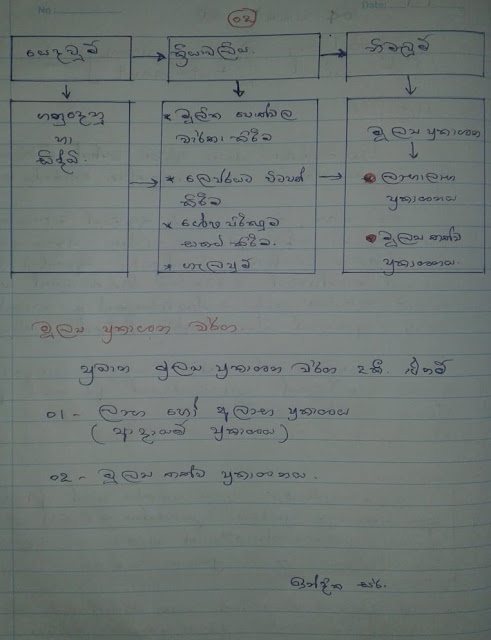 No
Date:
02
යෙදවුම්
ක්‍රියාවලිය.
නිමවුම්
ගනුදෙනු
හා
සිද්ධි.
* මූලික පොත්වල
වාර්තා කිරීම
* ලෙජරයට පිටපත්
කිරීම
* ශේෂ පිරික්සුම
සකස් කිරීම.
* ගැලපුම්
මූල්‍ය ප්‍රකාශන
ලාභාලාභ
ප්‍රකාශනය
මූල්‍ය තත්ව
ප්‍රකාශනය.
මූල්‍ය ප්‍රකාශන වර්ග.
ප්‍රධාන මූල්‍ය ප්‍රකාශන වර්ග 2කි. එනම්
01 - ලාභ හෝ අලාභ ප්‍රකාශය
(ආදායම් ප්‍රකාශය)
02 - මූල්‍ය තත්ව ප්‍රකාශනය.
සර්.